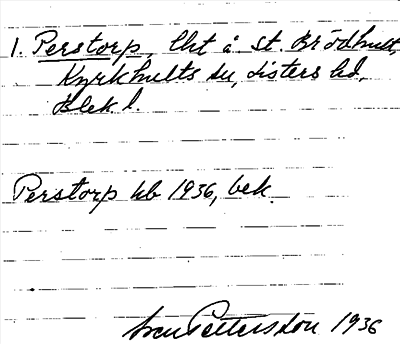 1. Perstorp, lht å St. Brödhult,
Kyrkhults sn, Listers hd,
Blek. l.
Perstorp kb 1936, bek.
Sven Pettersson 1936